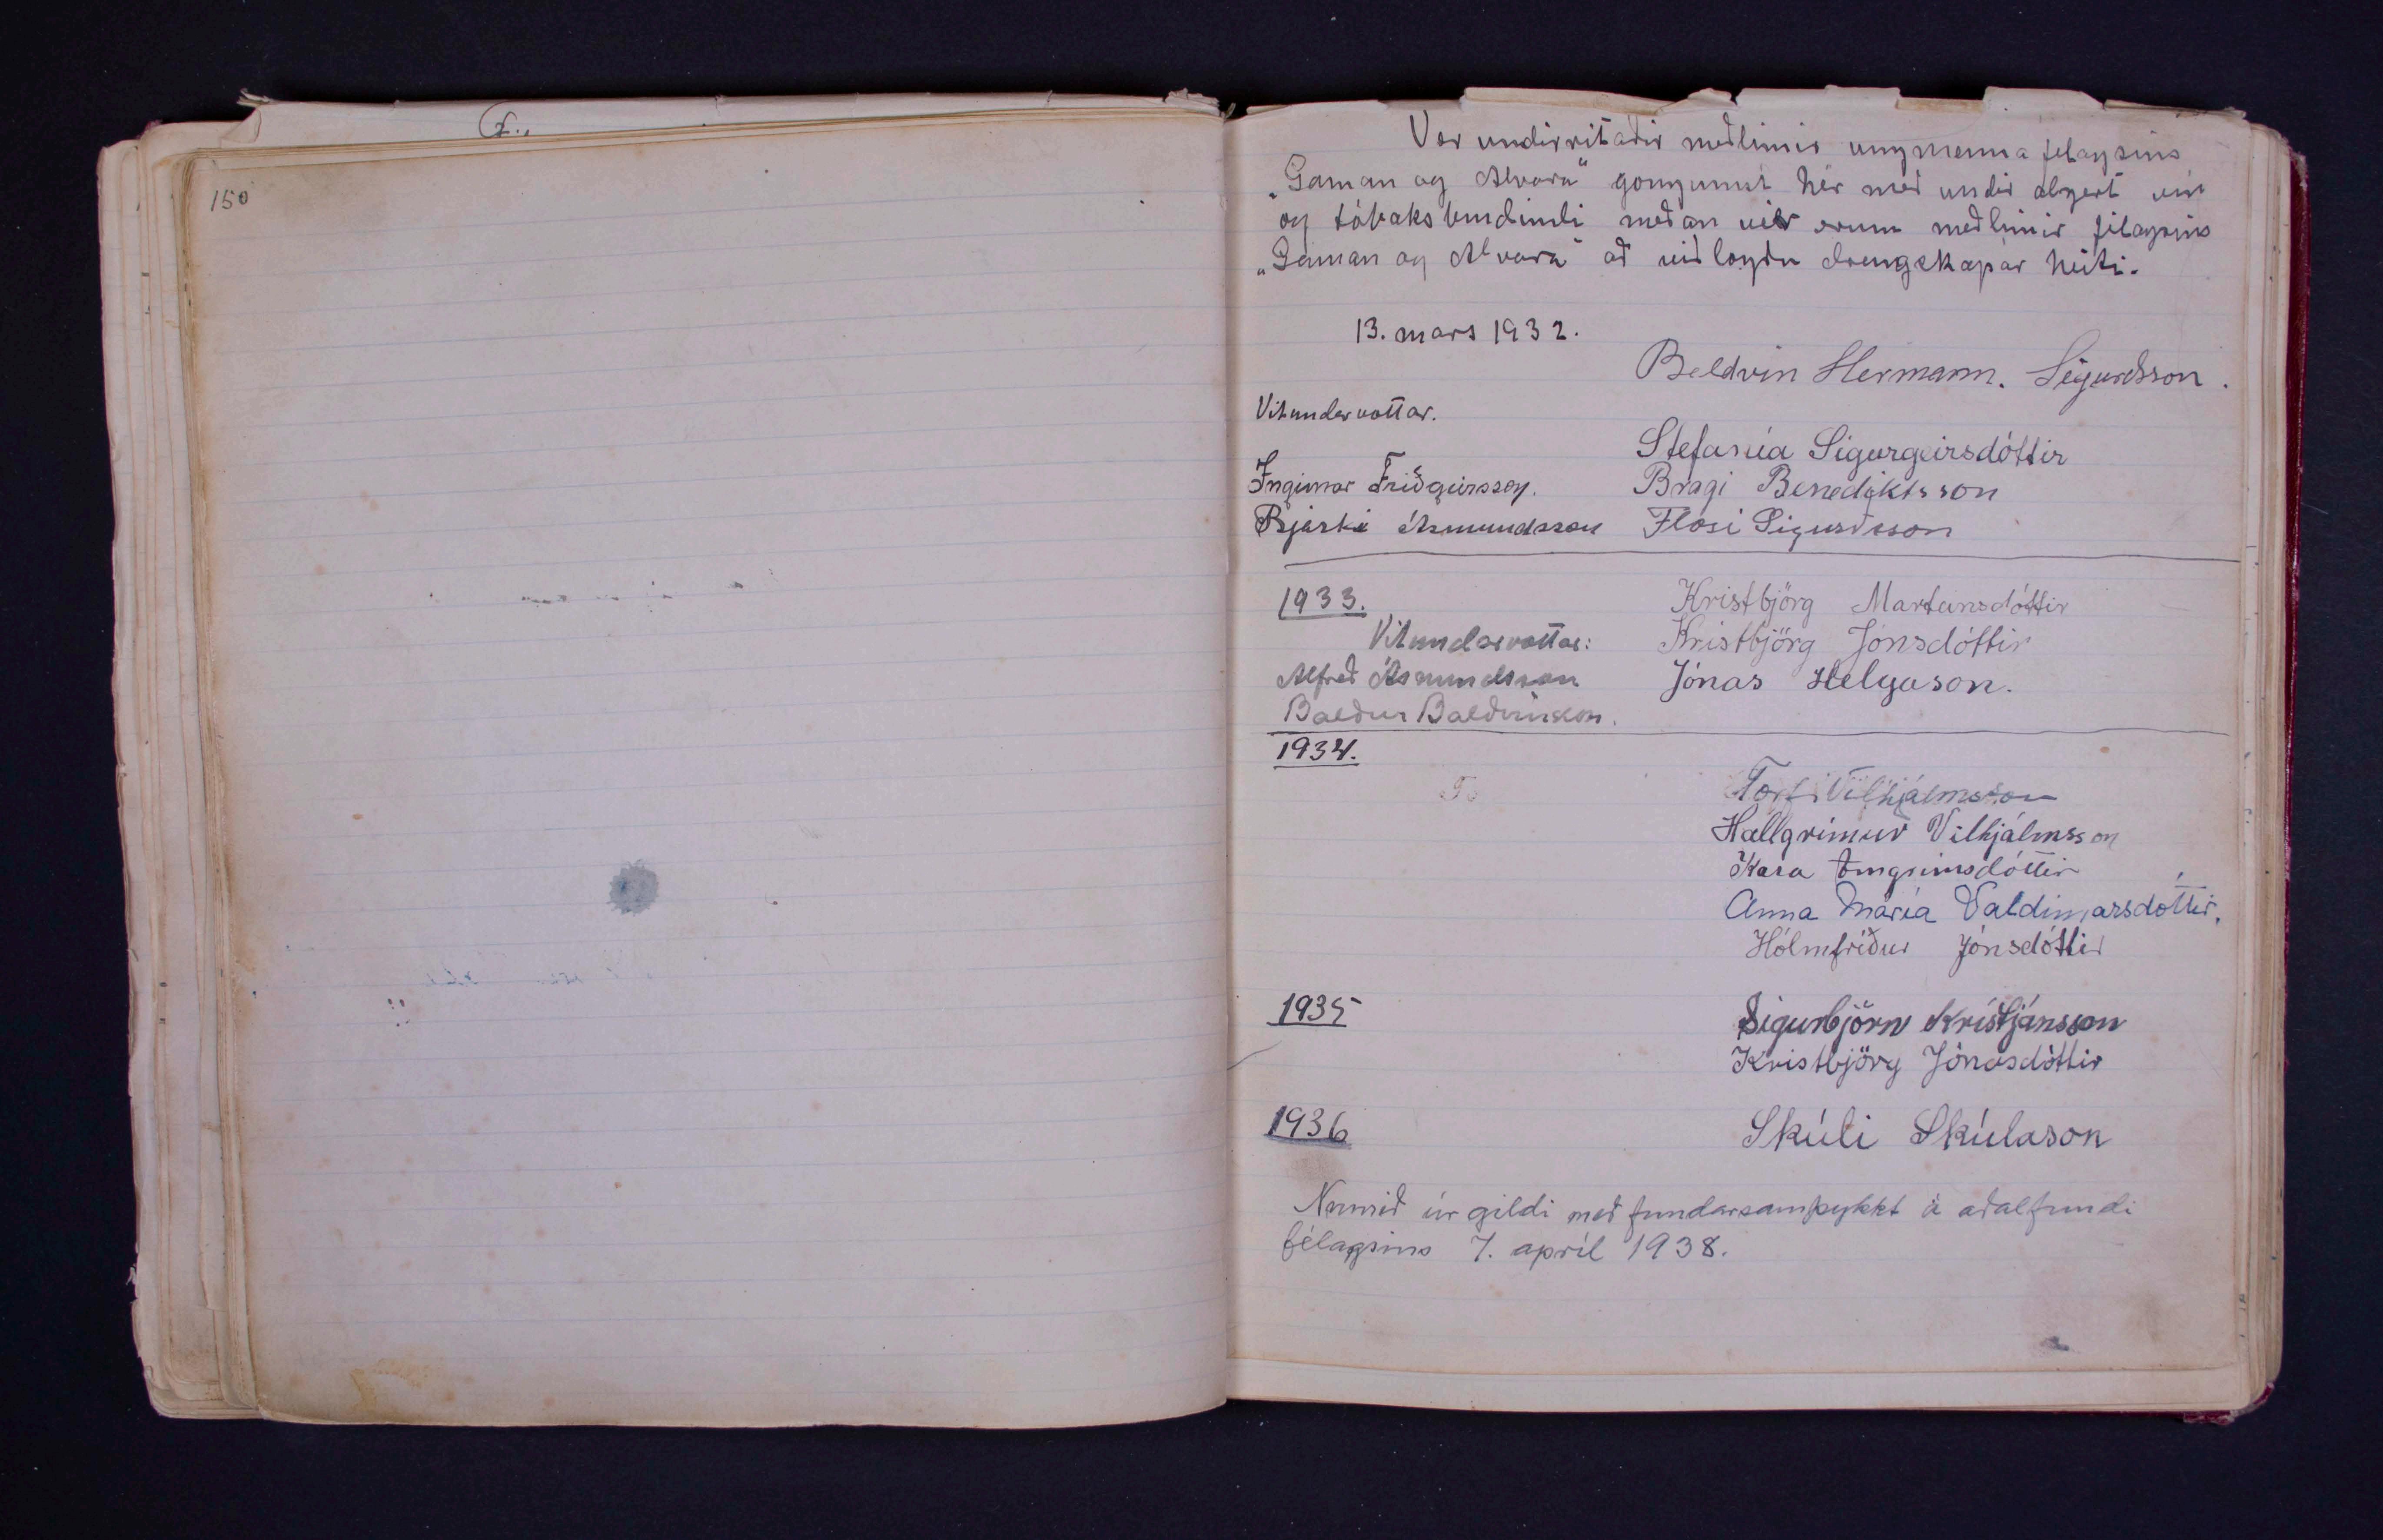 150
Vér undirritaðir meðlimir ungmennafélagsins
„Gaman og Alvara“ göngumst hér með undir algert vín
og tóbaksbindindi meðan vér erum meðlimir félagsins
„Gaman og Alvara“ að viðlögðu drengskapar heiti.
13. mars 1932.
Baldvin Hermann. Sigurdsson.
Vitundarvottar.
Stefanía Sigurgeirsdóttir
Ingimar Friðgeirsson. Bragi Benediktsson
Bjarki Ásmundsson Flosi Sigurdsson
1933. Kristbjörg Marteinsdóttir
Vitundarvottar: Kristbjörg Jónsdóttir
Alfreð Ásmundsson Jónas Helgason.
Baldur Baldvinsson.
1934.
To Torfi Vilhjálmsson
Hallgrímur Vilhjálmsson
Kara Arngrímsdóttir
Anna María Valdimarsdóttir.
Hólmfríður Jónsdóttir
1935 Sigurbjörn Kristjánsson
Kristbjörg Jónasdóttir
1936 Skúli Skúlason
Numið úr gildi með fundarsamþykkt á aðalfundi
félagsins 7. apríl 1938.